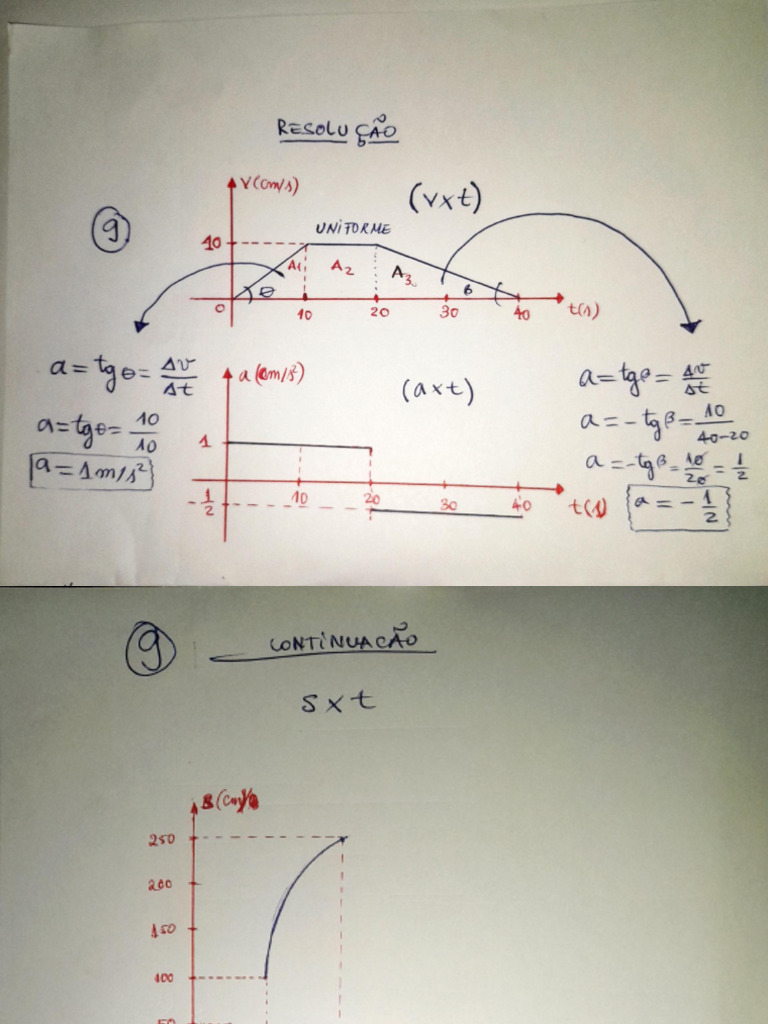 RESOLUÇÃO
9
V(cm/s)
(vxt)
UNIFORME
10
A1
A2
A3
θ
β
0
10
20
30
40
t(s)
a = tgθ = Δv/Δt
a = tgθ = 10/10
a = 1m/s²
a (cm/s²)
(axt)
1
-1/2
10
20
30
40
t(s)
a = tgβ = Δv/Δt
a = -tgβ = 10/40-20
a = -tgβ = 10/20 = 1/2
a = -1/2
9
CONTINUACÃO
sxt
250
200
150
100
50